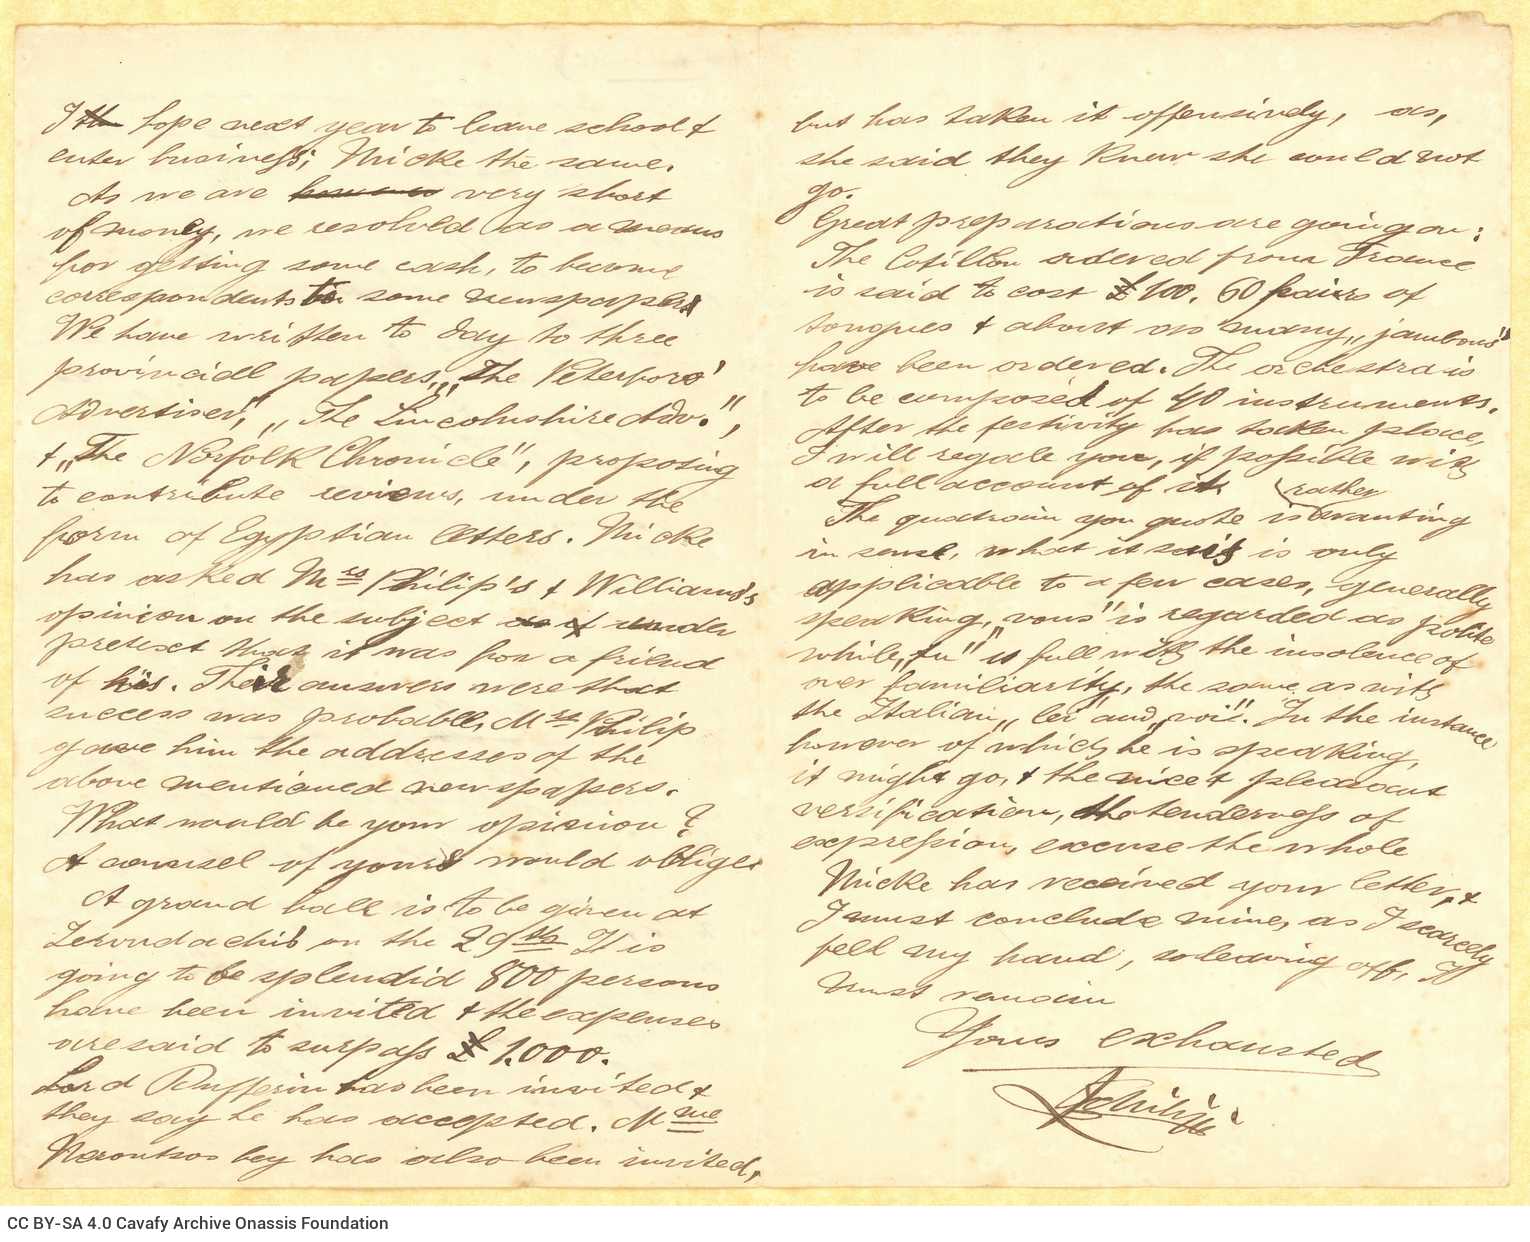 I th hope next year to leave school &
enter business; Micke the same.
As we are very short
of money, we resolved as a means
for getting some cash, to become
correspondents to some newspapers
We have written to day to three
provincial papers, „The Peterboro'
Advertiser", „The Lincolnshire Adv.",
& „The Norfolk Chronicle", proposing
to contribute reviews, under the
form of Egyptian letters. Micke
has asked Mrs Philip's & Williams's
opinion on the subject as if under
pretext that it was for a friend
of his. Their answers were that
success was probable, Mrs Philip
gave him the addresses of the
above mentioned newspapers.
What would be your opinion?
A counsel of yours would oblige
A grand ball is to be given at
Zervudachi's on the 29th It is
going to be splendid 800 persons
have been invited & the expenses
are said to surpass £ 1.000.
Lord Dufferin has been invited &
they say he has accepted. Mme
Neroutsos bey has also been invited,
but has taken it offensively, as,
she said they knew she could not
go.
Great preparations are going on:
The Cotillon ordered from France
is said to cost £ 100. 60 pairs of
tongues & about as many „jambons"
have been ordered. The orchestra is
to be composed of 40 instruments.
After the festivity has taken place,
I will regale you, if possible with
a full account of it.
rather
The quatrain you quote is wanting
in sense, what it says is only
applicable to a few cases, generally
speaking, „vous" is regarded as polite
while „tu" is full with the insolence of
over familiarity, the same as with
the Italian „lei" and „voi". In the instance
however of which he is speaking,
it might go, & the nice & pleasant
versification, the tenderness of
expression, excuse the whole
Micke has received your letter, &
I must conclude mine, as I scarcely
fell my hand, so leaving off, I
must remain
Yours exhausted
CC BY-SA 4.0 Cavafy Archive Onassis Foundation